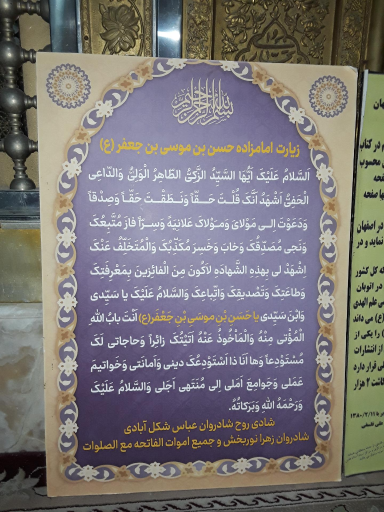 بسم الله الرحمن الرحیم
زیارت امامزاده حسن بن موسی بن جعفر (ع)
اَلسَّلامُ عَلَیْکَ اَیُّهَا السَّیِّدُ الزَّکِیُّ الطّاهِرُ الْوَلِیُّ وَالدّاعِی
الْحَفِیُّ اَشْهَدُ اَنَّکَ قُلْتَ حَـقّاً وَنَـطَقْتَ حَقّـاً وَصِدْقاً
وَدَعَوْتَ اِلـی مَوْلایَ وَمَـوْلاکَ عَلانِیَةً وَسِـرّاً فازَ مُتَّبِعُکَ
وَنَجی مُصَدِّقُکَ وَخابَ وَخَسِرَ مُکَذِّبُکَ وَالْمُتَخَلِّفُ عَنْکَ
اِشْهَدْ لی بِهذِهِ الشَّهادَةِ لاَکُونَ مِنَ الْفائِزینَ بِمَعْرِفَتِکَ
وَطاعَتِکَ وَتَصْدیقِکَ وَاتِّباعِکَ وَالسَّلامُ عَلَیْکَ یا سَیِّدی
وَابْنَ سَیِّدی یا حَسَنِ بْنِ موسَی بْنِ جَعْفَرٍ(ع) اَنْتَ بابُ اللّهِ
الْمُؤْتی مِنْهُ وَالْمَأْخُوذُ عَنْهُ اَتَیْتُکَ زائِراً وَحاجاتی لَکَ
مُسْتَوْدِعاً وَها اَنَا ذا اَسْتَوْدِعُکَ دینی وَاَمانَتی وَخَواتیمَ
عَمَلی وَجَوامِعَ اَمَلی اِلی مُنْتَهی اَجَلی وَالسَّلامُ عَلَیْکَ
وَرَحْمَةُ اللّهِ وَبَرَکاتُهُ.
شادی روح شادروان عباس شکل آبادی
شادروان زهرا نوربخش و جمیع اموات الفاتحه مع الصلوات
در کتاب
محسوب
صفحه
در اصفهان
نماید و در
که کل کشور
در اتوبان
علم الهدی
(ع) می داند
را یکی از
از انتشارات
قرار دارد
۲ هزار